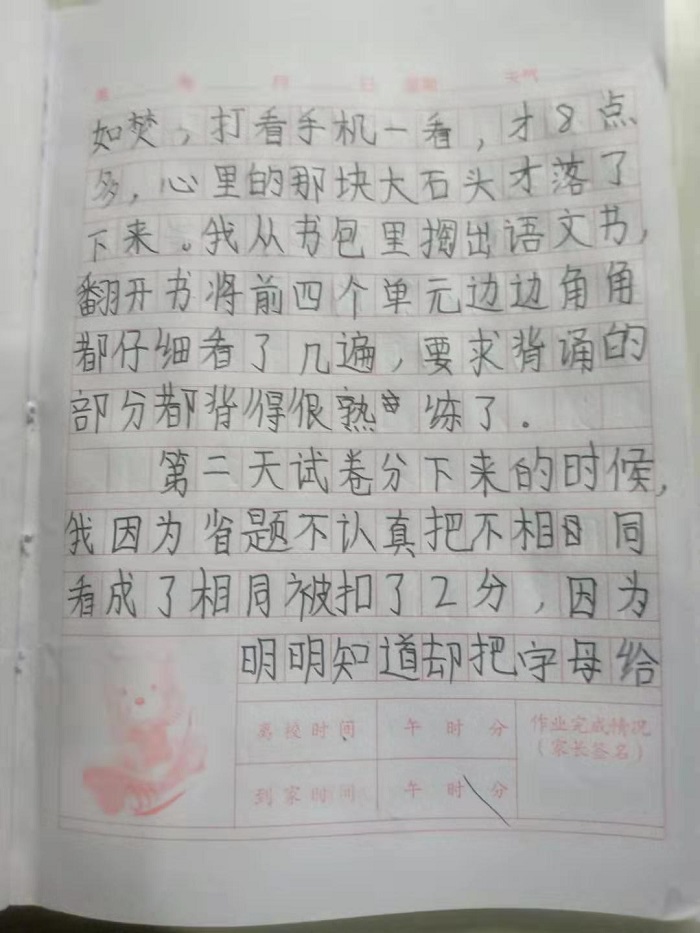 年 月 日 星期 天气
如焚，打看手机一看，才8点
多，心里的那块大石头才落了
下来。我从书包里掏出语文书，
翻开书将前四个单元边边角角
都仔细看了几遍，要求背诵的
部分都背得很熟练了。
第二天试卷分下来的时候，
我因为省题不认真把不相同
看成了相同被扣了2分，因为
明明知道却把字母给
离校时间 午 时 分 作业完成情况
（家长签名）
到家时间 午 时 分